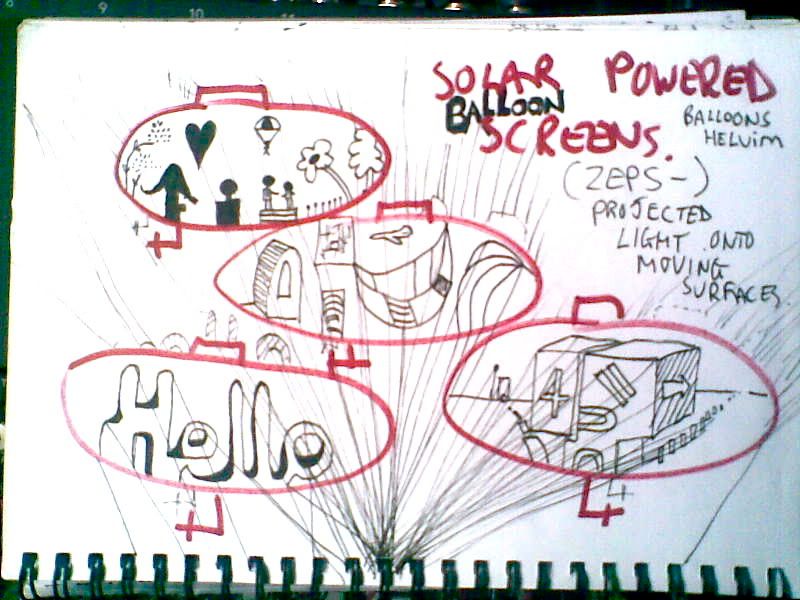 SOLAR POWERED
BALLOON
SCREENS.
BALLOONS
HELVIM
(ZEPS-)
PROJECTED
LIGHT ONTO
MOVING
SURFACES
Hello
9
10
11